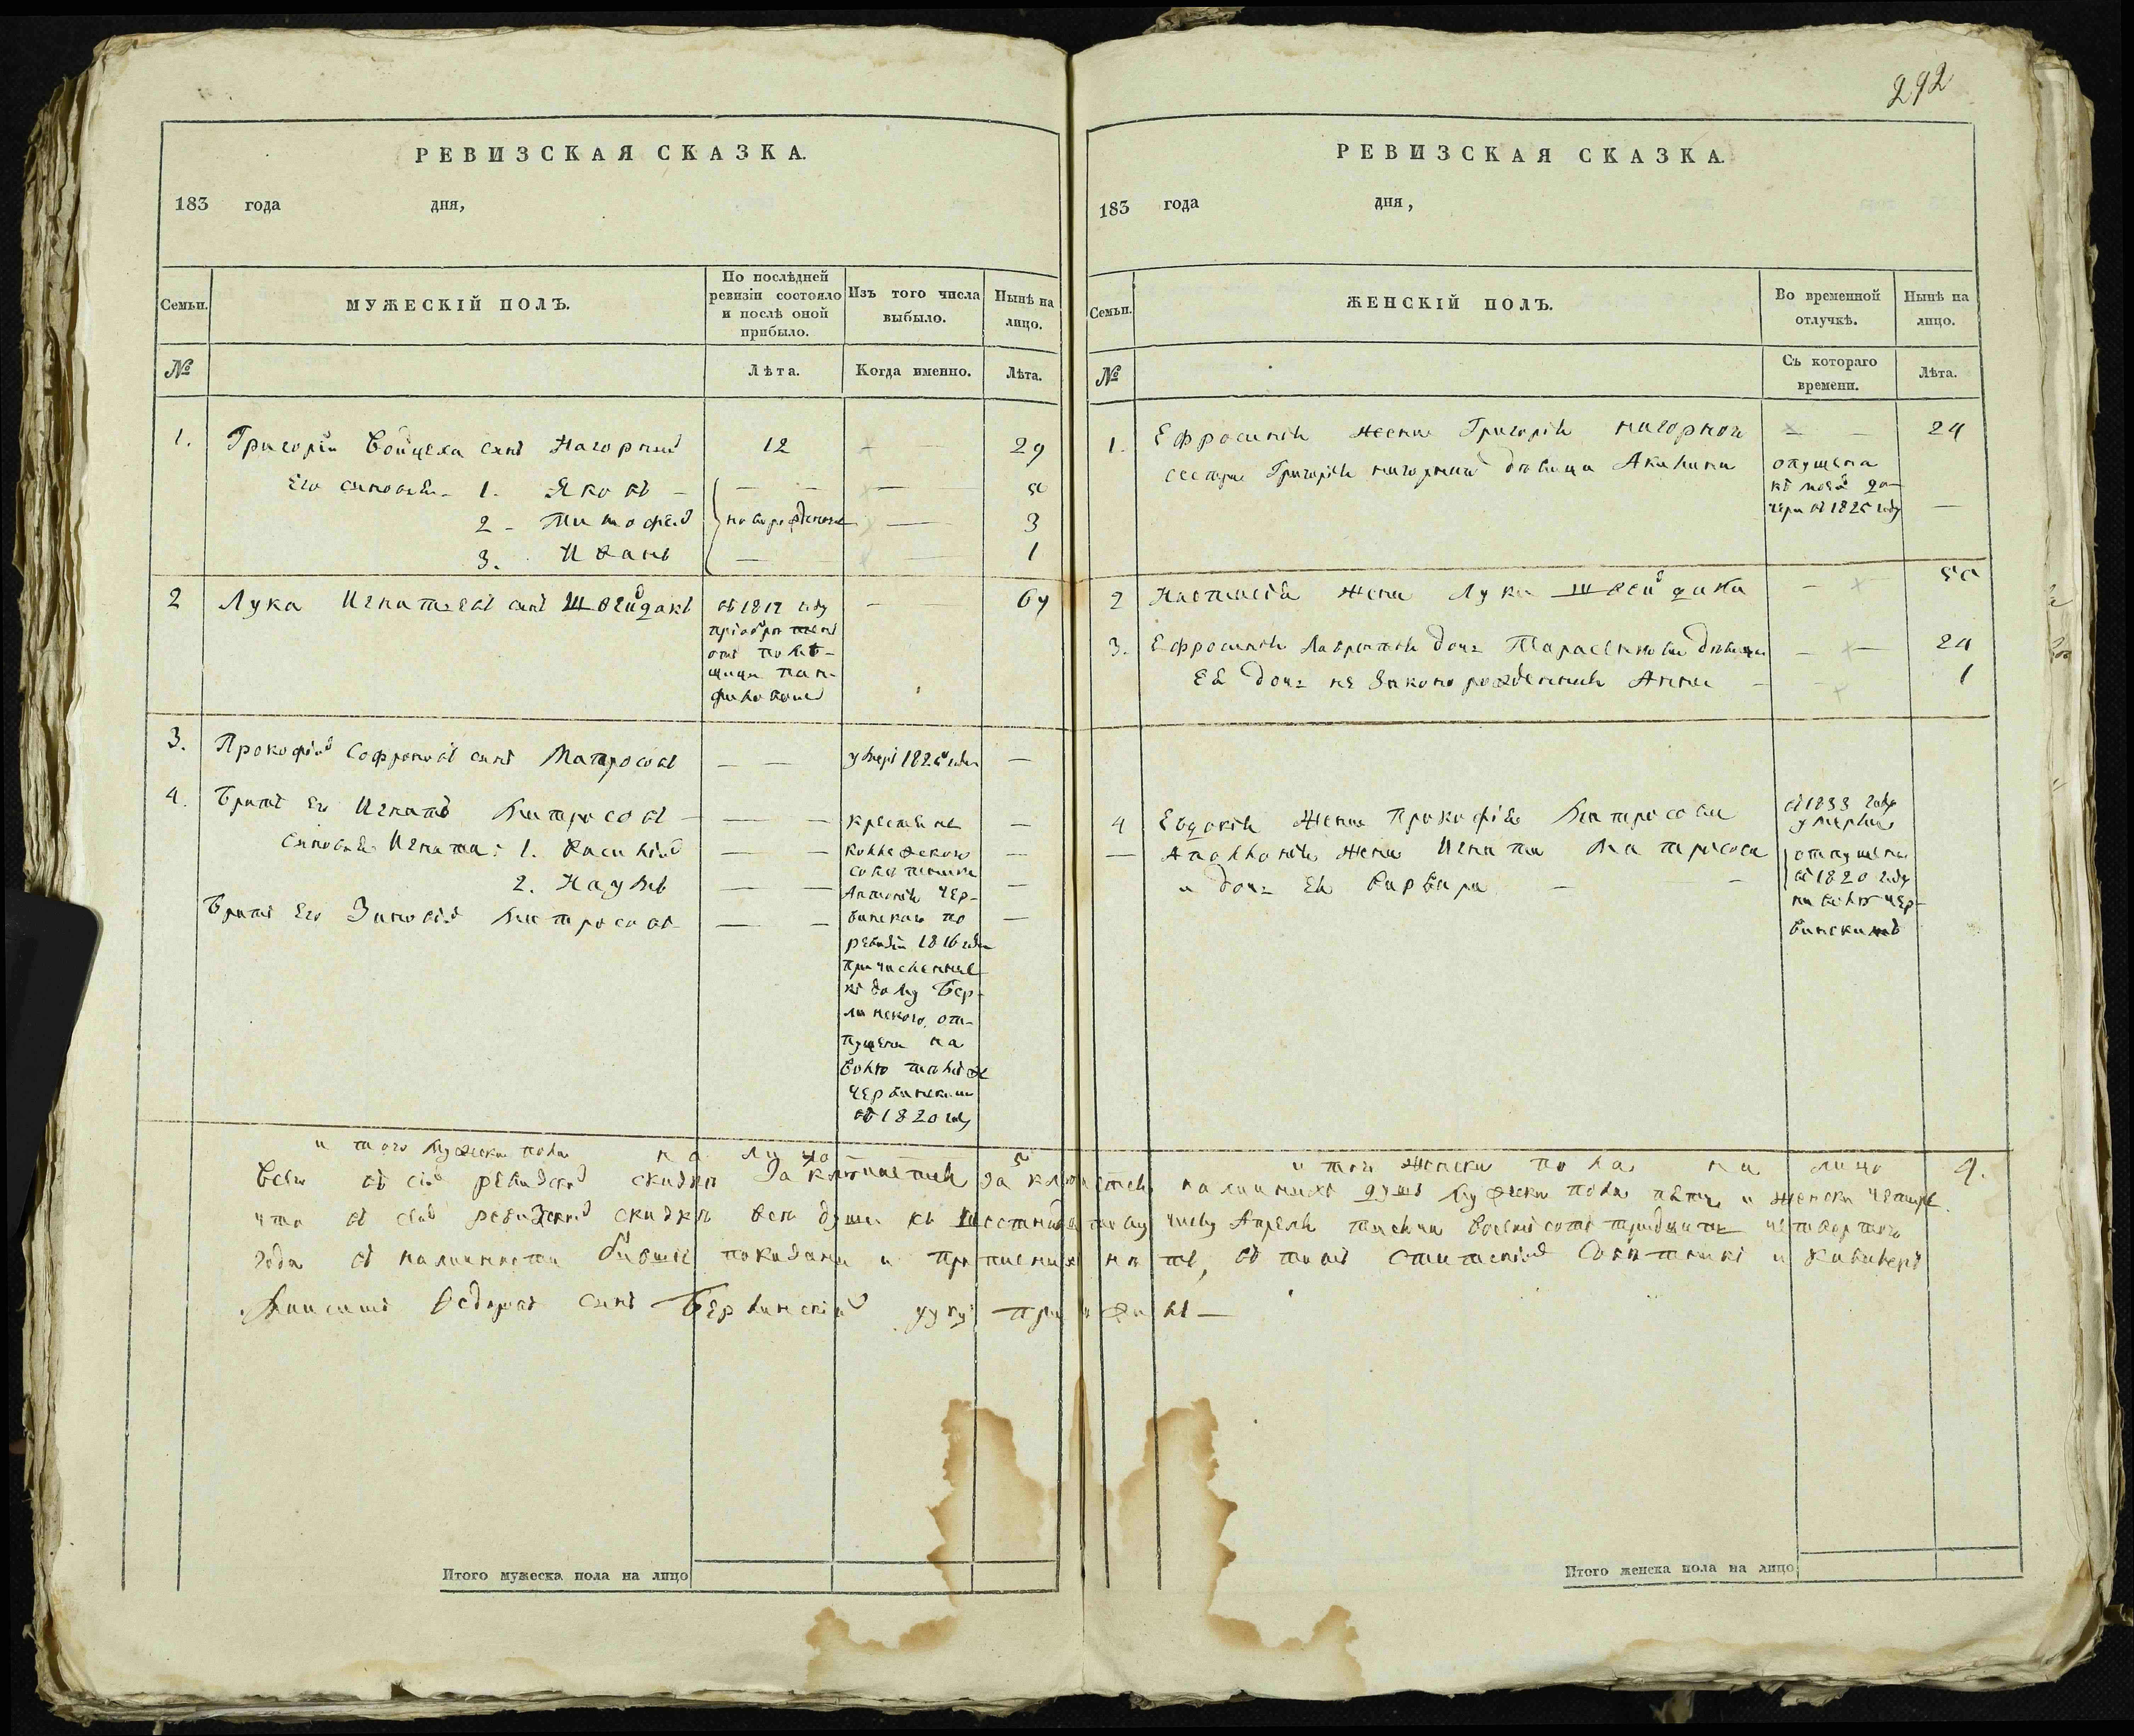 292
РЕВИЗСКАЯ СКАЗКА.
183 года дня,
Семьи.
МУЖЕСКІЙ ПОЛЪ.
По послѣдней
ревизіи состояло
и послѣ оной
прибыло.
Изъ того числа
выбыло.
Нынѣ на
лицо.
№
Лѣта.
Когда именно.
Лѣта.
1. Григорій Войцеха сынъ Нагорный 12 — 29
Его сыновья 1. Яковъ — —
2 - Тимофей новорожденные — 3
3. Иванъ — — 1
2 Лука Игнатьевъ сынъ Швейдакъ — 64
въ 1817 году
пріобретенъ
отъ помѣ-
щицы пан-
филовой
3. Прокофій Софроновъ сынъ Матросовъ — — умеръ 1825 года —
4. Братъ его Игнатъ Матросовъ — — —
Сыновья Игната: 1. Василій — — —
2. Наумъ — — —
Братъ его Зиновій Матросовъ — — —
крестьяне
коллежского
советника
Антонія Чер-
винского по
ревизіи 1816 года
причисленные
къ дому Бер-
линского, от-
пущены на
волю тоже
Червинскимъ
въ 1820 году
итого мужеска пола на лицо 5
РЕВИЗСКАЯ СКАЗКА.
183 года дня,
Семьи.
ЖЕНСКІЙ ПОЛЪ.
Во временной
отлучкѣ.
Нынѣ на
лицо.
№
Съ котораго
времени.
Лѣта.
1. Ефросинія жена Григорія нагорного — — 24
сестра Григорія нагорного дѣвица Акилина —
отпущена
къ моей до-
чери въ 1825 году
2 Настасія жена Луки Швейдака — 50
3. Ефросинія Лаврентія дочь Тарасенкова дѣвица — — 24
Ея дочь не законорожденная Анна — 1
4 Евдокія жена Прокофія Матросова
въ 1833 году
умерла
— Аполлонія жена Игната Матросова
и дочь Ея Варвара — —
отпущены
въ 1820 году
на волю Чер-
винскимъ
итого женска пола на лицо 4.
Всего въ сей ревизской сказкѣ заключается наличныхъ душъ мужеска пола пять и женска четыре.
что въ сей ревизской сказкѣ всѣ души къ шестнадцатому числу Апреля тысяча восемьсотъ тридцать четвертого
года въ наличности бывшіе показаны и прописныхъ нѣтъ, въ томъ статской Совѣтникъ и Кавалеръ
Максимъ Федоровъ сынъ Берлинскій руку приложилъ —
Итого мужеска пола на лицо
Итого женска пола на лицо